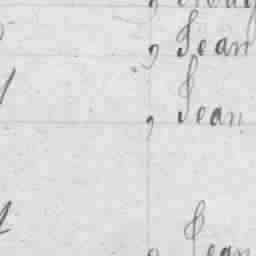 , Jean
, Jean
, Jean